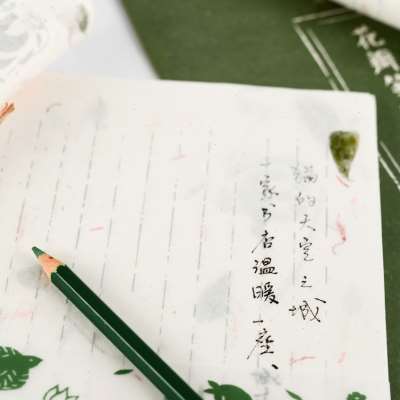 猫的天空之城
一家书店温暖一座、
花